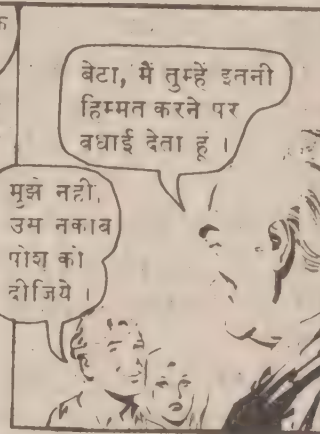 क
बेटा, मैं तुम्हें इतनी
हिम्मत करने पर
वधाई देता हूं ।
मुझे नही,
उम नकाब
पोश को
दीजिये ।